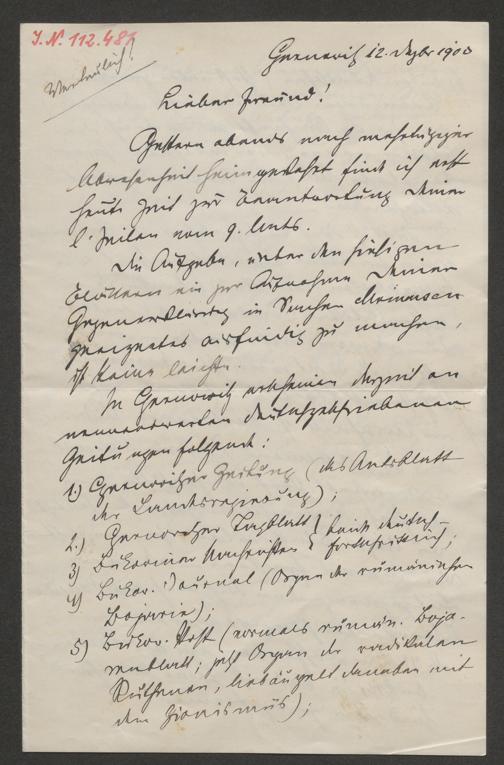 I.N. 112.481
Vertraulich!
Czernowitz 12. Dezbr 1900
Lieber Freund!
Gestern abends nach mehrtägiger
Abwesenheit heimgekehrt find ich erst
heute Zeit zur Beantwortung Deiner
l. Zeilen vom 9. lMts.
Die Aufgabe, unter den hiesigen
Blättern ein zur Aufnahme Deiner
Gegenerklärung in Sachen
geeignetes ausfindig zu machen,
ist keine leichte.
In Czernowitz erscheinen derzeit an
nennenswerten deutschgeschriebenen
Zeitungen folgende:
1.) Czernowitzer Zeitung (das Amtsblatt
der Landesregierung);
2.) Czernowitzer Tagblatt } beide deutsch-
3) Bukowiner Nachrichten } fortschrittlich;
4) Bukow. Journal (Organ der rumänischen
Bojarie);
5) Bukow. Post (vormals rumän. Boja-
renblatt; jetzt Organ der radikalen
Ruthenen, liebäugelt daneben mit
dem Zionismus);